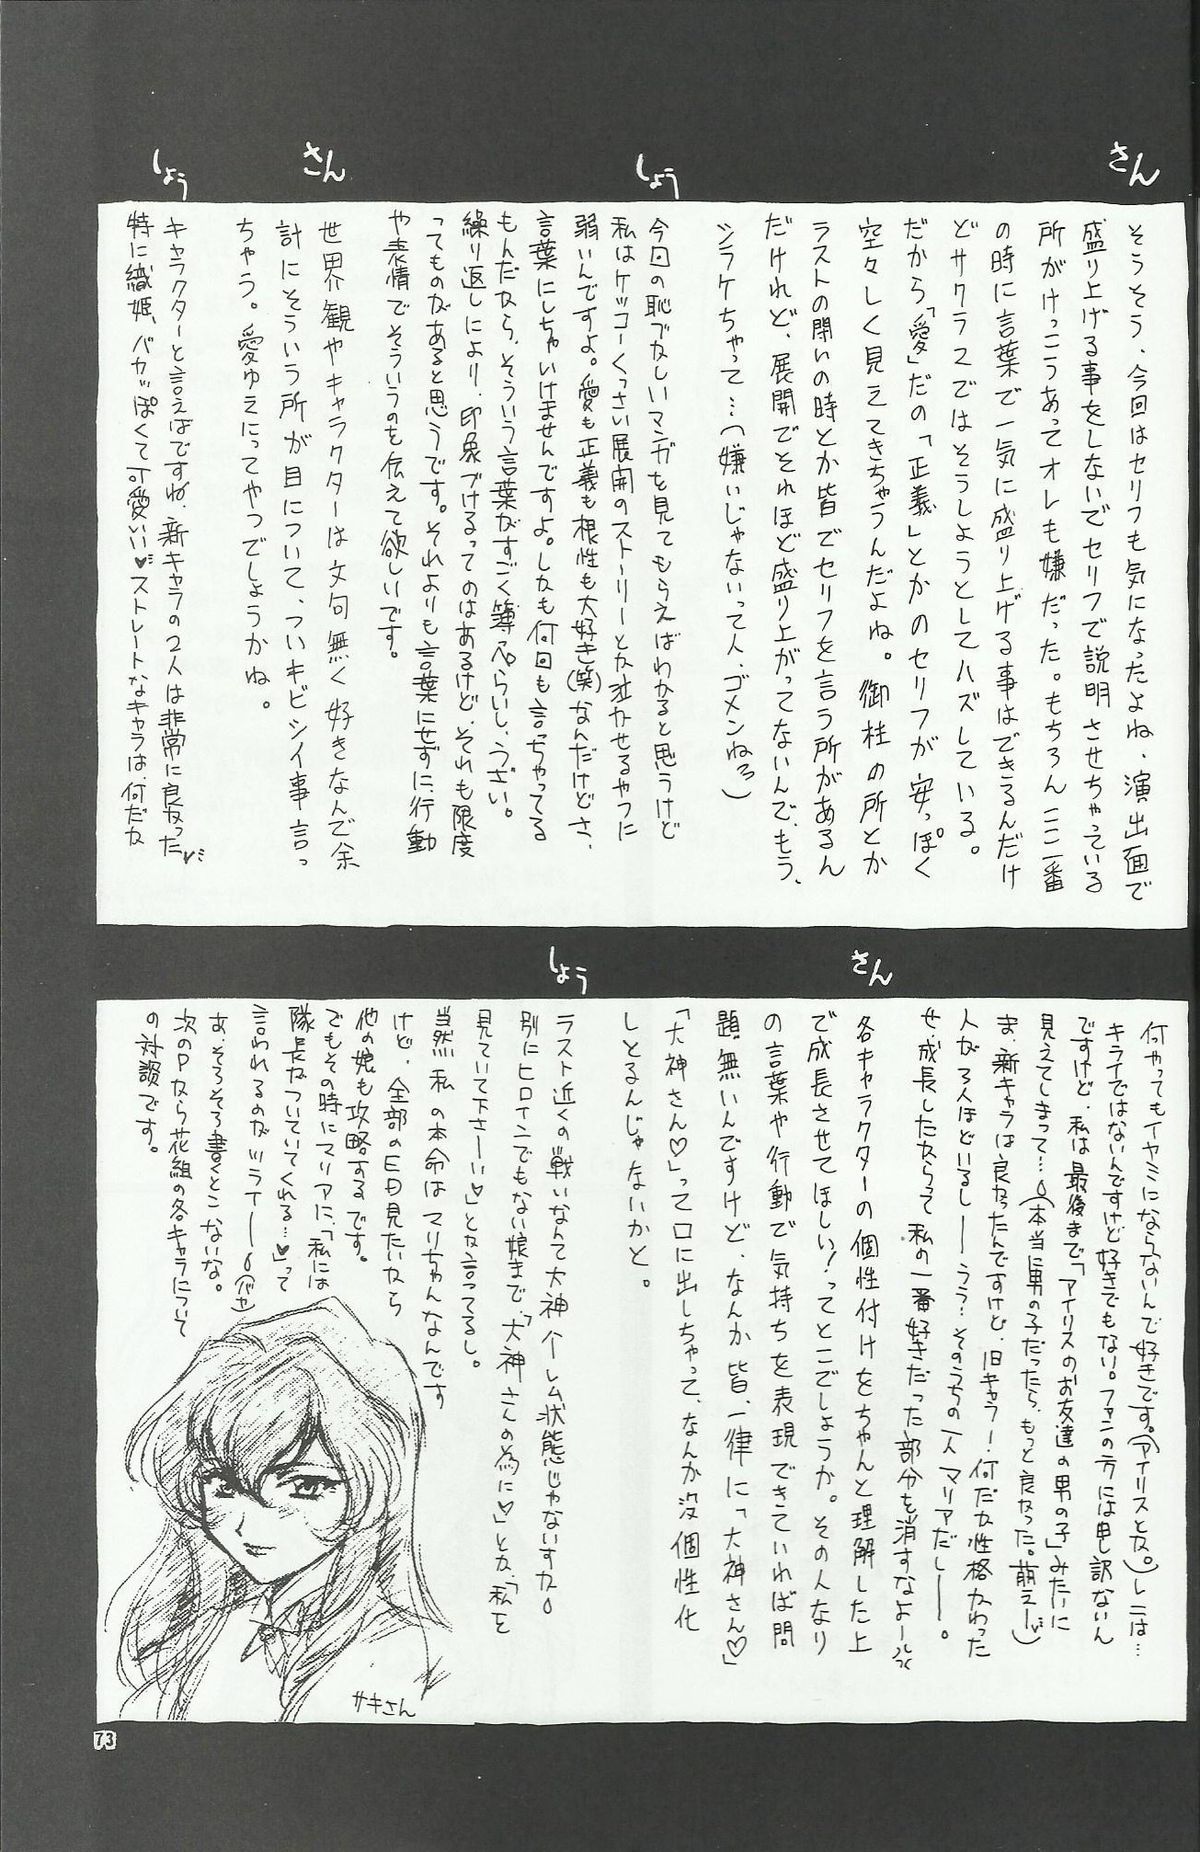 さん
そうそう、今回はセリフも気になったよね、演出面で
盛り上げる事をしないでセリフで説明させちゃっている
所がけっこうあってオレも嫌だった。もちろんここ一番
の時に言葉で一気に盛り上げる事はできるんだけ
どサクラ2ではそうしようとしてハズしている。
だから「愛」だの「正義」とかのセリフが安っぽく
空々しく見えてきちゃうんだよね。御柱の所とか
ラストの闘いの時とか皆でセリフを言う所があるん
だけれど、展開でそれほど盛り上がってないんで、もう、
シラケちゃって…(嫌いじゃないって人、ゴメンねろ)
しょう
今回の恥ずかしいマンガを見てもらえばわかると思うけど
私はケッコーくっさい展開のストーリーとか泣かせるヤツに
弱いんですよ。愛も正義も根性も大好き(笑)なんだけどさ、
言葉にしちゃいけませんですよ。しかも何回も言っちゃってる
もんだから、そういう言葉がすごく薄っぺらいし、うざい。
繰り返しにより、印象づけるってのはあるけど、それも限度
ってものがあると思うです。それよりも言葉にせずに、行動
や表情でそういうのを伝えて欲しいです。
さん
世界観やキャラクターは文句無く好きなんで余
計にそういう所が目について、ついキビシイ事言っ
ちゃう。愛ゆえにってやつでしょうかね。
しょう
キャラクターと言えばですね、新キャラの2人は非常に良かった
特に織姫、バカっぽくて可愛い♥ストレートなキャラは、何だか
何やってもイヤミにならないんで好きです。(アイリスとか。)レニは…
キライではないんですけど好きでもない。ファンの方には申し訳ないん
ですけど、私は最後まで「アイリスのお友達の男の子」みたいに
見えてしまって…(本当に男の子だったら、もっと良かった。萌えー)
ま、新キャラは良かったんですけど、旧キャラー、何だか性格かわった
人が3人ほどいるしーーうう…そのうちの一人マリアだしーー。
せ、成長したからって私の一番好きだった部分を消すなよー
さん
各キャラクターの個性付けをちゃんと理解した上
で成長させてほしい!ってとこでしょうか。その人なり
の言葉や行動で気持ちを表現できていれば問
題無いんですけど、なんか皆、一律に「大神さん♡」
「大神さん♡」って口に出しちゃって、なんか没個性化
しとるんじゃないかと。
しょう
ラスト近くの戦いなんて大神ハーレム状態じゃないすか
別にヒロインでもない娘まで、「大神さんの為に♡」とか、「私を
見ていて下さーい♡」とか言ってるし。
当然 私の本命はマリちゃんなんです
けど、全部のED見たいから
他の娘も攻略するです。
でもその時にマリアに、「私には
隊長がついていてくれる…♥」って
言われるのがツライーー(バカ)
あ、そろそろ書くとこないな。
次のPから花組の各キャラについて
の対談です。
サキさん
73